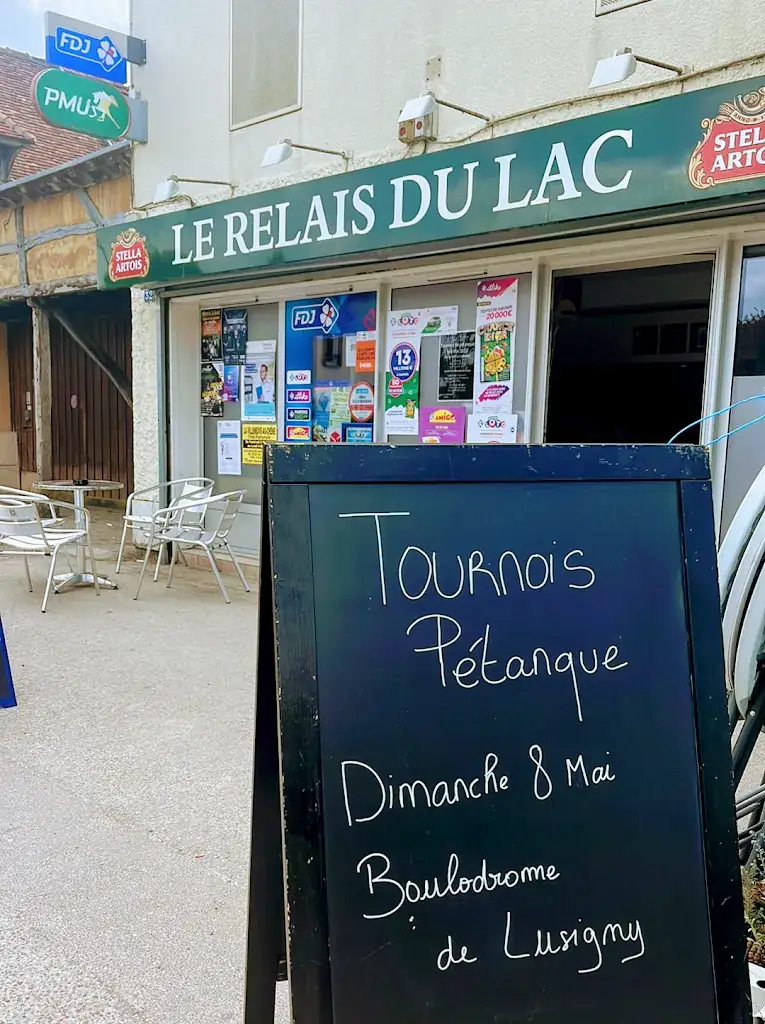 FDJ
PMU
LE RELAIS DU LAC
STELLA
ARTOIS
ANNO
STEL
ARTO
FDJ
LOTO
13
20 000€
AMIGO
LOTO
Tournois
Pétanque
Dimanche 8 Mai
Boulodrome
de Lusigny